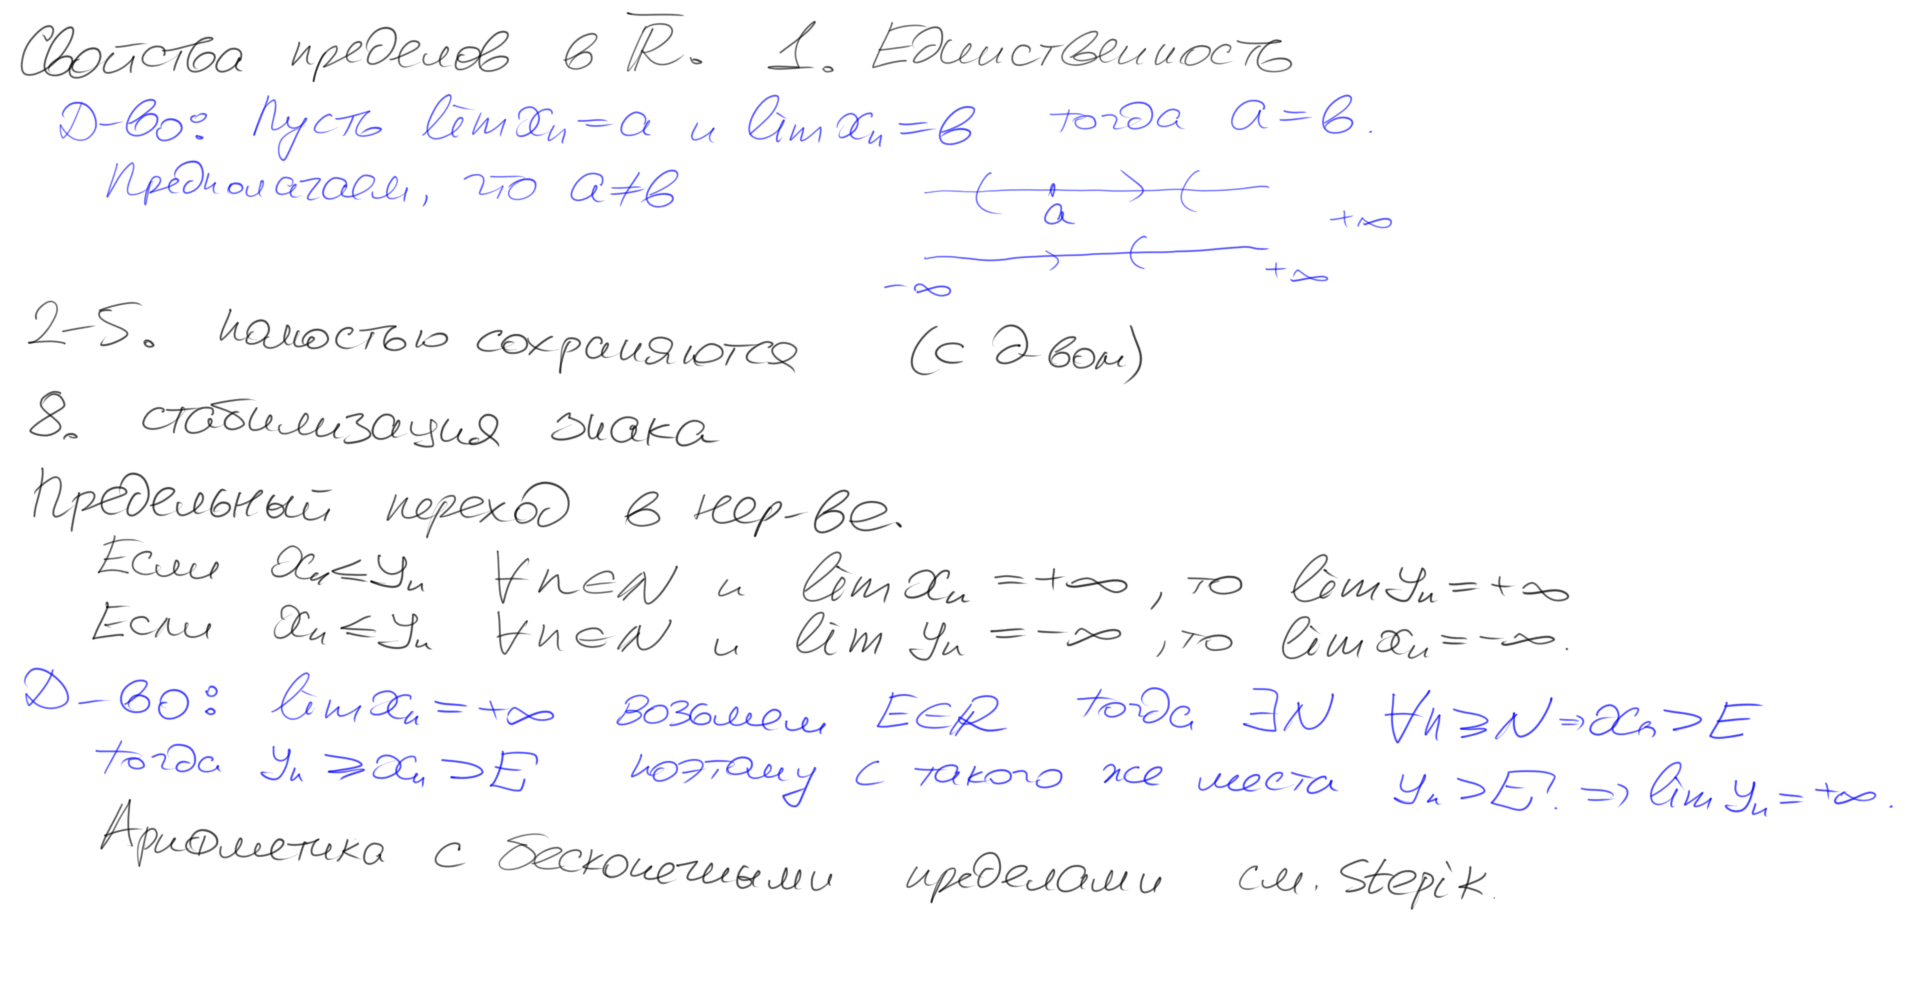 Свойства пределов в R̅. 1. Единственность
Д-во: Пусть lim xₙ = a и lim xₙ = b тогда a = b.
Предполагаем, что a ≠ b
a
+∞
-∞ +∞
2-5. полностью сохраняются (с д-вом)
8. стабилизация знака
Предельный переход в нер-ве.
Если xₙ ≤ yₙ ∀n∈N и lim xₙ = +∞, то lim yₙ = +∞
Если xₙ ≤ yₙ ∀n∈N и lim yₙ = -∞, то lim xₙ = -∞.
Д-во: lim xₙ = +∞ возьмем E∈R тогда ∃N ∀n ≥ N ⇒ xₙ > E
тогда yₙ ≥ xₙ > E поэтому с такого же места yₙ > E. ⇒ lim yₙ = +∞.
Арифметика с бесконечными пределами см. Stepik.